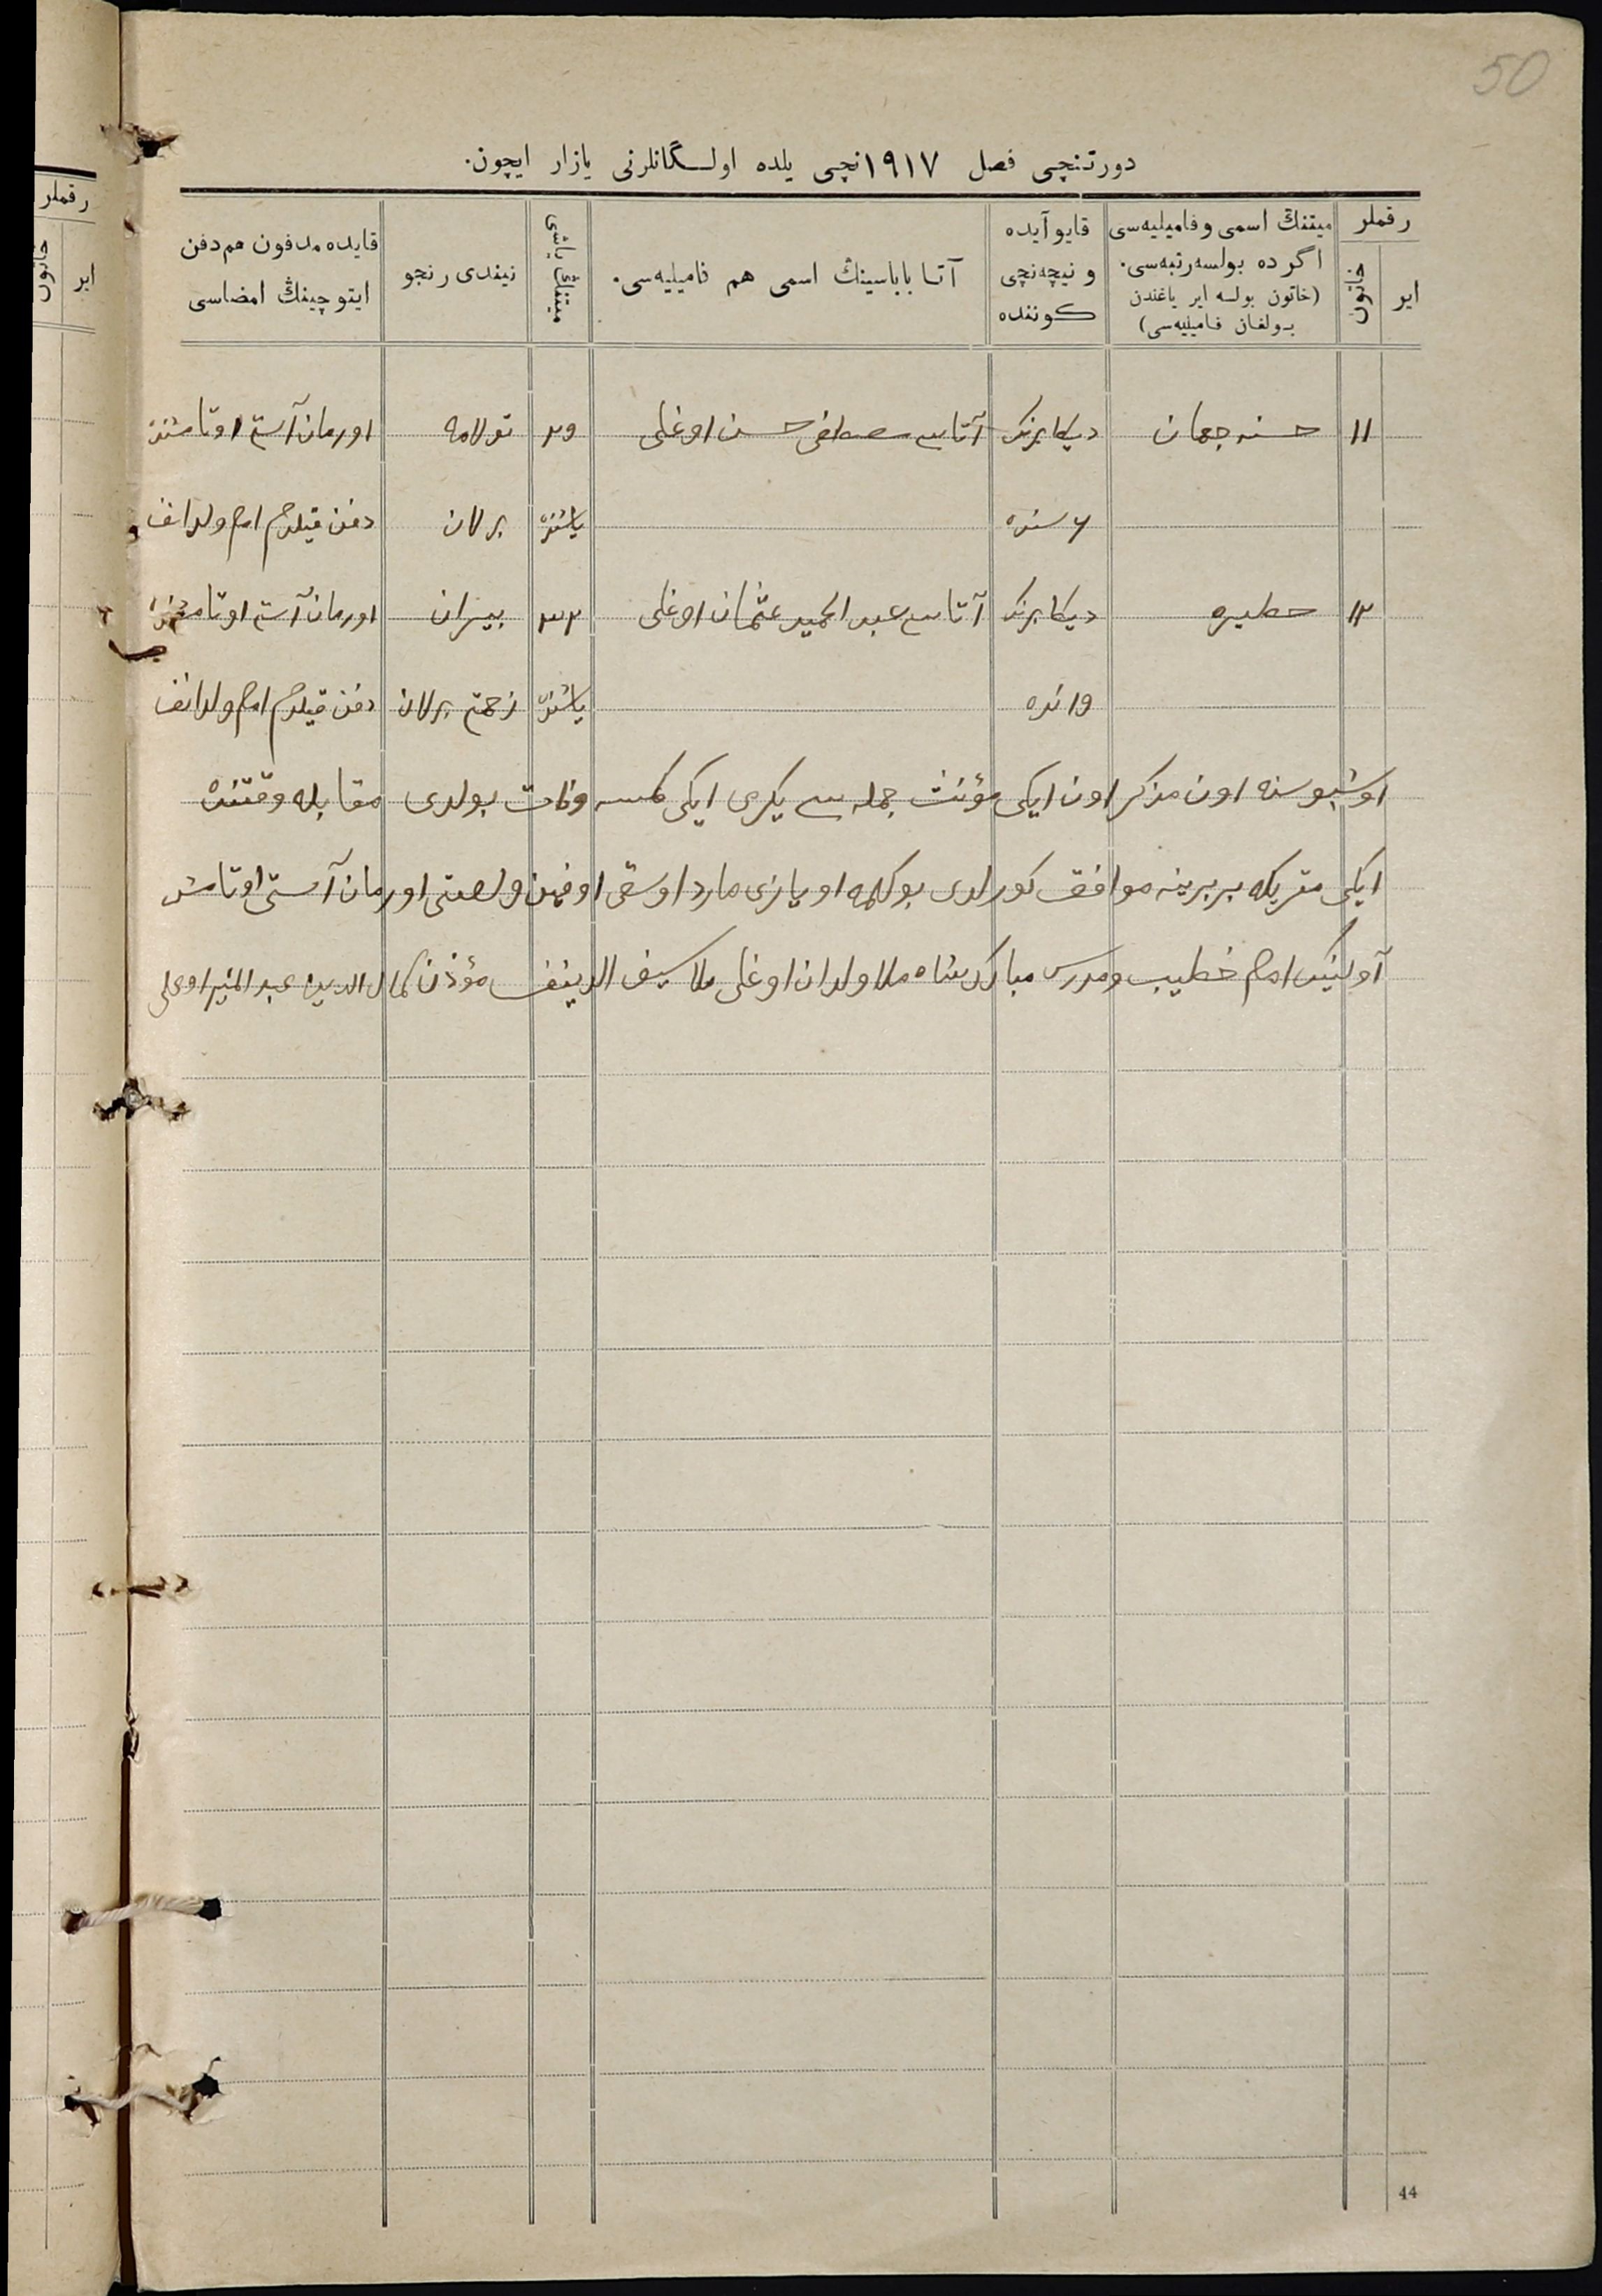 50
دورتنچی فصل ١٩١٧نچی یلده اولـگانلرنی یازار ایچون.
رقملر
ایر
خاتون
میتنڭ اسمی و فامیلیه‌سی
اگر ده بولسه رتبه‌سی.
(خاتون بولسه ایر یاغندن
بولغان فامیلیه‌سی)
قایو آیده
و نیچه‌نچی
کوننده
آتا باباسینڭ اسمی هم فامیلیه‌سی.
میتنڭ یاشی
نیندی رنجو
قایده مدفون هم دفن
ایتوچینڭ امضاسی
١١ حسنه جهان دیکابرنک آتاسی مصطفی حسن اوغلی ٢٩ تولامه اورمان آستی اوتامشنده
٦ سنده یاشنده برلان دفن قیلدم امام ولدانف
١٢ دیکابرنک آتاسی عبد الحمید عثمان اوغلی ٣٢ بیزران اورمان آستی اوتامشنده
١٩ نده یاشنده زحمتی برلان دفن قیلدم امام ولدانف
اوشبو سنه اون مذکر اون ایکی مؤنث جمله سی یکرمی ایکی کمسه وفات بولدی مقابله وقتنده
ایکی متریکه بر برینه موافق کورلدی بو کلمه او یازدی اورمان آستی اوتامش
آولینک امام خطیب و مدرس مبارکشاه ملا ولدان اوغلی ملا سیف الدینف مؤذن کمال الدین عبد المنیر اوغلی
رقملر
ایر
خاتون
44